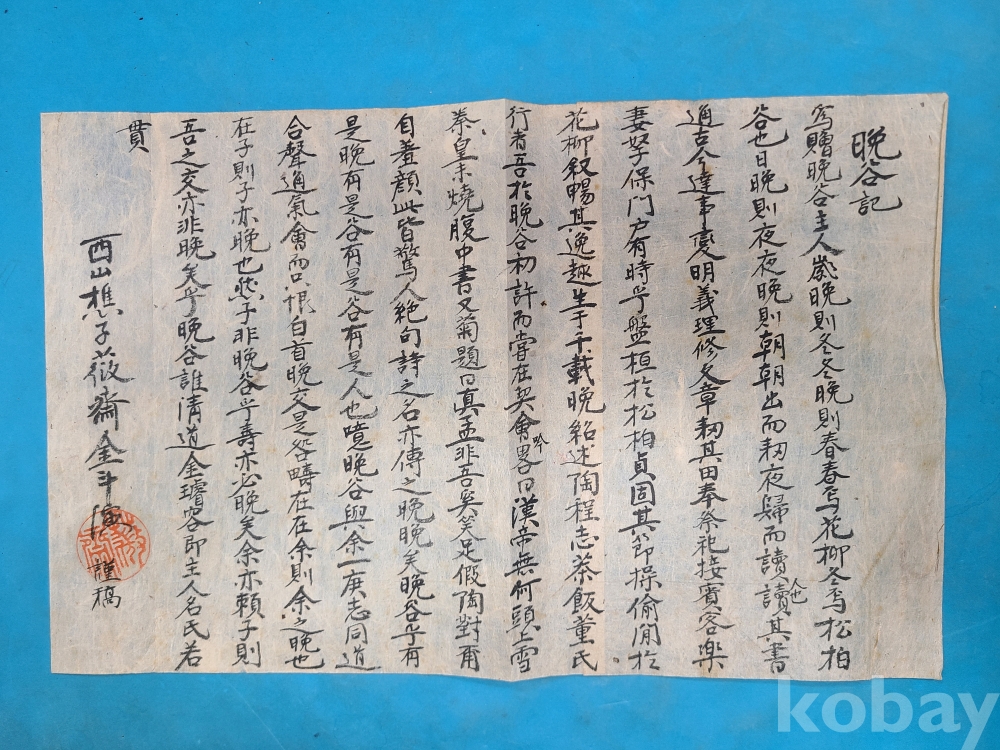 晩谷記
寫贈晩谷主人歲晩則冬冬晩則春春焉花柳冬焉松柏
谷也日晩則夜夜晩則朝朝出而耕夜歸而讀讀其書
人也
通古今達事變明義理修文章耕其田奉祭祀接賓客樂
妻孥保門户有時乎盤桓於松柏貞固其節操偷閒於
花柳叙暢其逸趣生于千載晩紹述陶程志茶飯董氏
行者吾於晩谷初許而嘗在契會畧曰漢帝無何頭上雪
吟
秦皇未燒腹中書又菊題曰真孟非吾奚笑足假陶對爾
自羞顔此皆驚人絶句詩之名亦傳之晩晩矣晩谷乎有
是晩有是谷有是谷有是人也噫晩谷與余一庚志同道
合聲通氣會而只恨白首晩交是咎疇在在余則余之晩也
在子則子亦晩也然子非晩谷乎壽亦必晩矣余亦賴子則
吾之交亦非晩矣乎晩谷誰清道金璿容即主人名氏若
貫
西山樵子薇齋金斗海謹稿
kobay